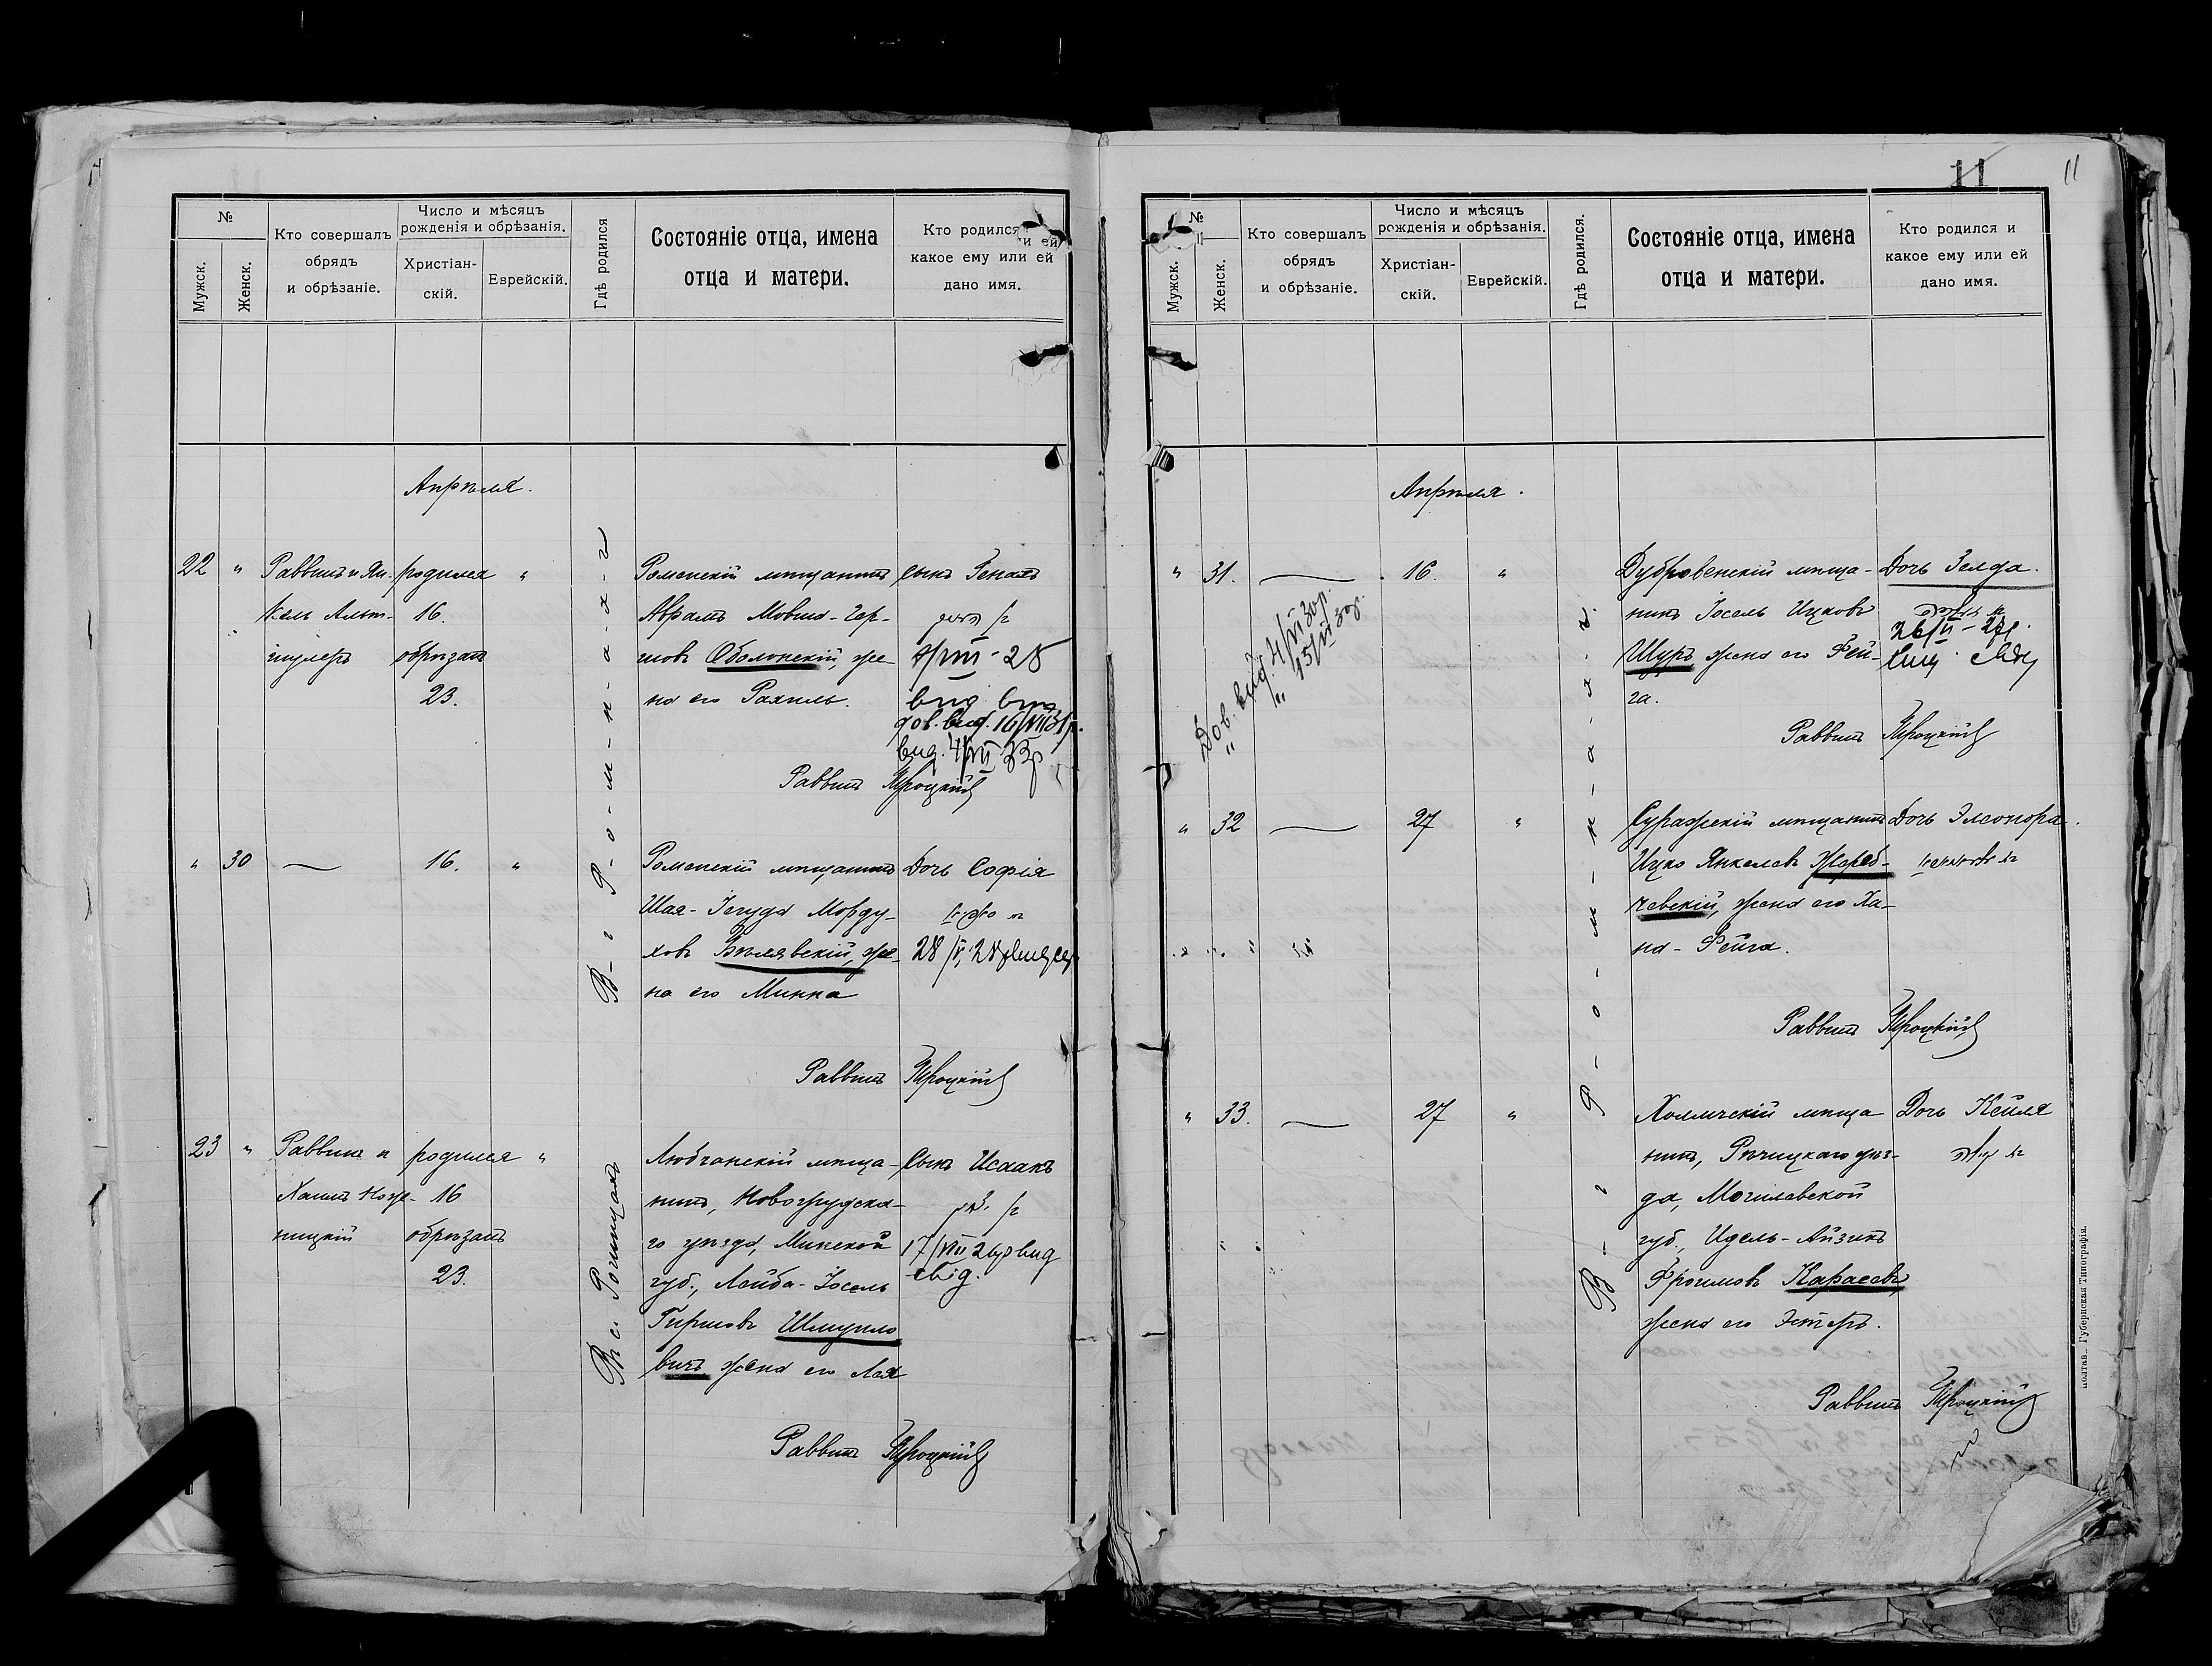 11
11
№
Мужск.
Женск.
Кто совершалъ
обрядъ
и обрѣзаніе.
Число и мѣсяцъ
рожденія и обрѣзанія.
Христіан-
скій.
Еврейскій.
Гдѣ родился
Состояніе отца, имена
отца и матери.
Кто родился
и ей
какое ему или ей
дано имя.
Апрѣля.
22 " Раввинъ и Ян- родился "
кель Альт- 16.
шулеръ обрѣзанъ
23.
В-г Р-о-м-н-а-х-ъ
Роменскій мѣщанинъ
Абрамъ Мовша-Гер-
шовъ Оболонскій, же-
на его Рахиль.
Сынъ Генахъ
дов. вид. 16/VII 31р.
вид. 4/VII 33р
Раввинъ Троцкій
" 30 — 16. "
Роменскій мѣщанинъ
Шая-Іегуда Морду-
ховъ Бѣлявскій, же-
на его Минна
Дочь Софія
Раввинъ Троцкій
23 " Раввинъ и родился "
Хаимъ Нож- 16
ницкій обрѣзанъ
23.
Любчанскій мѣща-
нинъ, Новогрудска-
го уѣзда, Минской
губ., Лейба-Іосель
Гиршовъ Шмуило
вичъ жена его Лея
Сынъ Исаакъ
17/VIII 26р вид
свід.
Раввинъ Троцкій
№
Мужск.
Женск.
Кто совершалъ
обрядъ
и обрѣзаніе.
Число и мѣсяцъ
рожденія и обрѣзанія.
Христіан-
скій.
Еврейскій.
Гдѣ родился.
Состояніе отца, имена
отца и матери.
Кто родился и
какое ему или ей
дано имя.
Апрѣля.
" 31. — 16. "
Дов. вид. 4/VI 30р.
" " 15/VI 30р.
В-г Р-о-м-н-а-х-ъ.
Дубровенскій мѣща-
нинъ Іосель Ицковъ
Шуръ жена его Фей-
га.
Дочь Зелда.
Раввинъ Троцкій
" 32 — 27 "
Суражскій мѣщанинъ
Ицко Янкелевъ Жереб-
чевскій, жена его Ха-
на-Фейга.
Дочь Элеонора.
Раввинъ Троцкій
" 33. — 27 "
Холмечскій мѣща
нинъ, Рѣчицкаго уѣз-
да, Могилевской
губ., Идель-Айзикъ
Фроимовъ Карасевъ,
жена его Эстеръ.
Дочь Кейля
Раввинъ Троцкій
Полтав. Губернская Типографія.